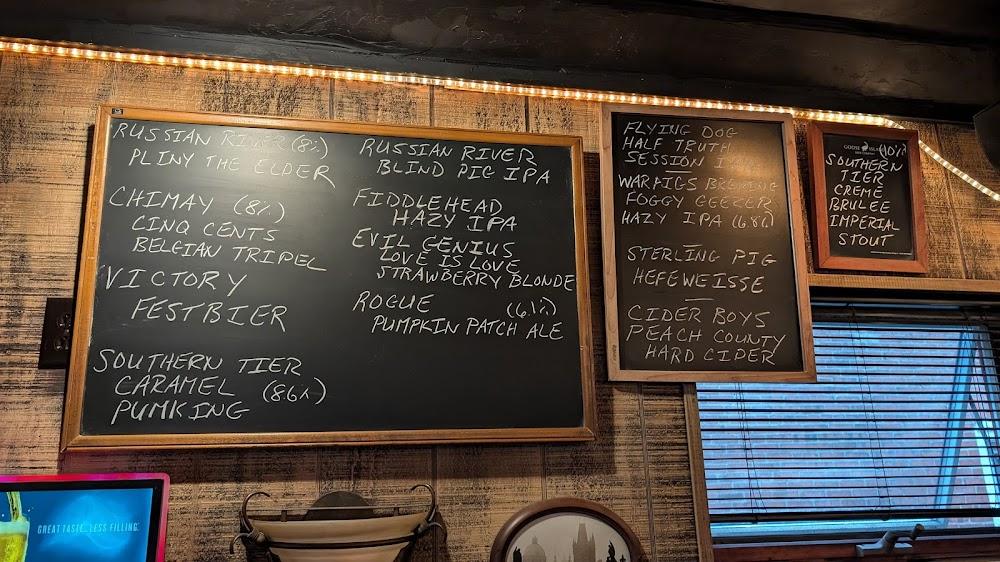 RUSSIAN RIVER (8%)
PLINY THE ELDER
CHIMAY (8%)
CINQ CENTS
BELGIAN TRIPEL
VICTORY
FESTBIER
SOUTHERN TIER
CARAMEL (8.6%)
PUMKING
RUSSIAN RIVER
BLIND PIG IPA
FIDDLEHEAD
HAZY IPA
EVIL GENIUS
LOVE IS LOVE
STRAWBERRY BLONDE
ROGUE (6.1%)
PUMPKIN PATCH ALE
FLYING DOG
HALF TRUTH
SESSION
WARPIGS BREWING
FOGGY GEEZER
HAZY IPA (6.8%)
STERLING PIG
HEFEWEISSE
CIDER BOYS
PEACH COUNTY
HARD CIDER
GOOSE ISLAND
(10%)
SOUTHERN
TIER
CREME
BRULEE
IMPERIAL
STOUT
GREAT TASTE...LESS FILLING